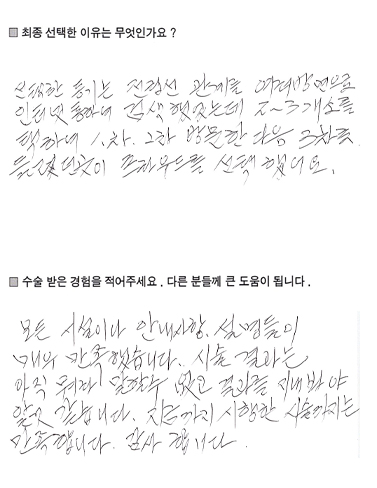 최종 선택한 이유는 무엇인가요 ?
선택한 동기는 전립선 관계를 여러방면으로
인터넷 통하여 검색했었는데 2~3개소를
택하여 1.차. 2차 방문한 다음 3차로
들렸던곳이 프라우드를 선택 했어요.
수술 받은 경험을 적어주세요 . 다른 분들께 큰 도움이 됩니다 .
모든 시설이나 안내사항. 설명등이
매우 만족했습니다. 시술 결과는
아직 뭐라 말할수 없고 결과를 지내봐야
알것 같습니다. 지금까지 시행한 시술까지는
만족합니다. 감사 합니다.